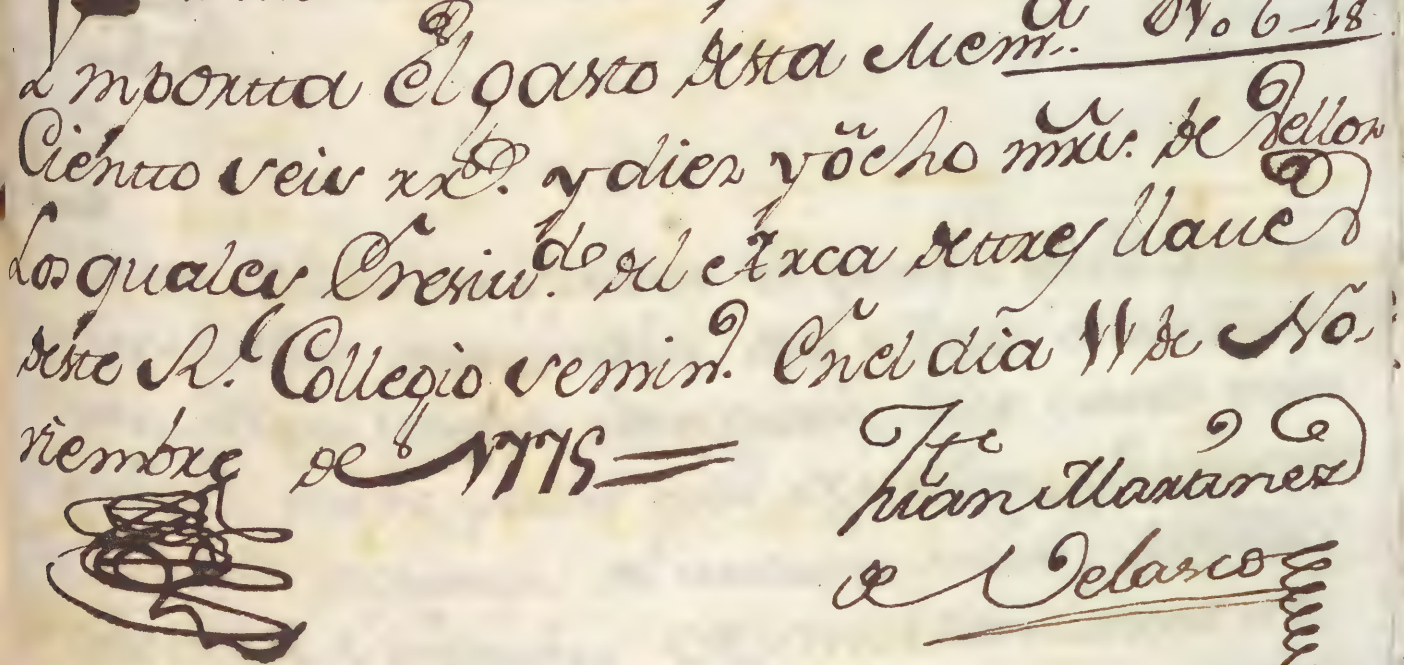 Importta El gasto desta Mem.ª 0106-18
Ciento seis rr.s y diez y ocho mrs. de Vellon
Los quales En resiu.do del Arca de tres llaues
deste R.l Collegio semin.o En el dia 11 de No-
viembre de 1775
Jph
Juan Martinez
de Velasco